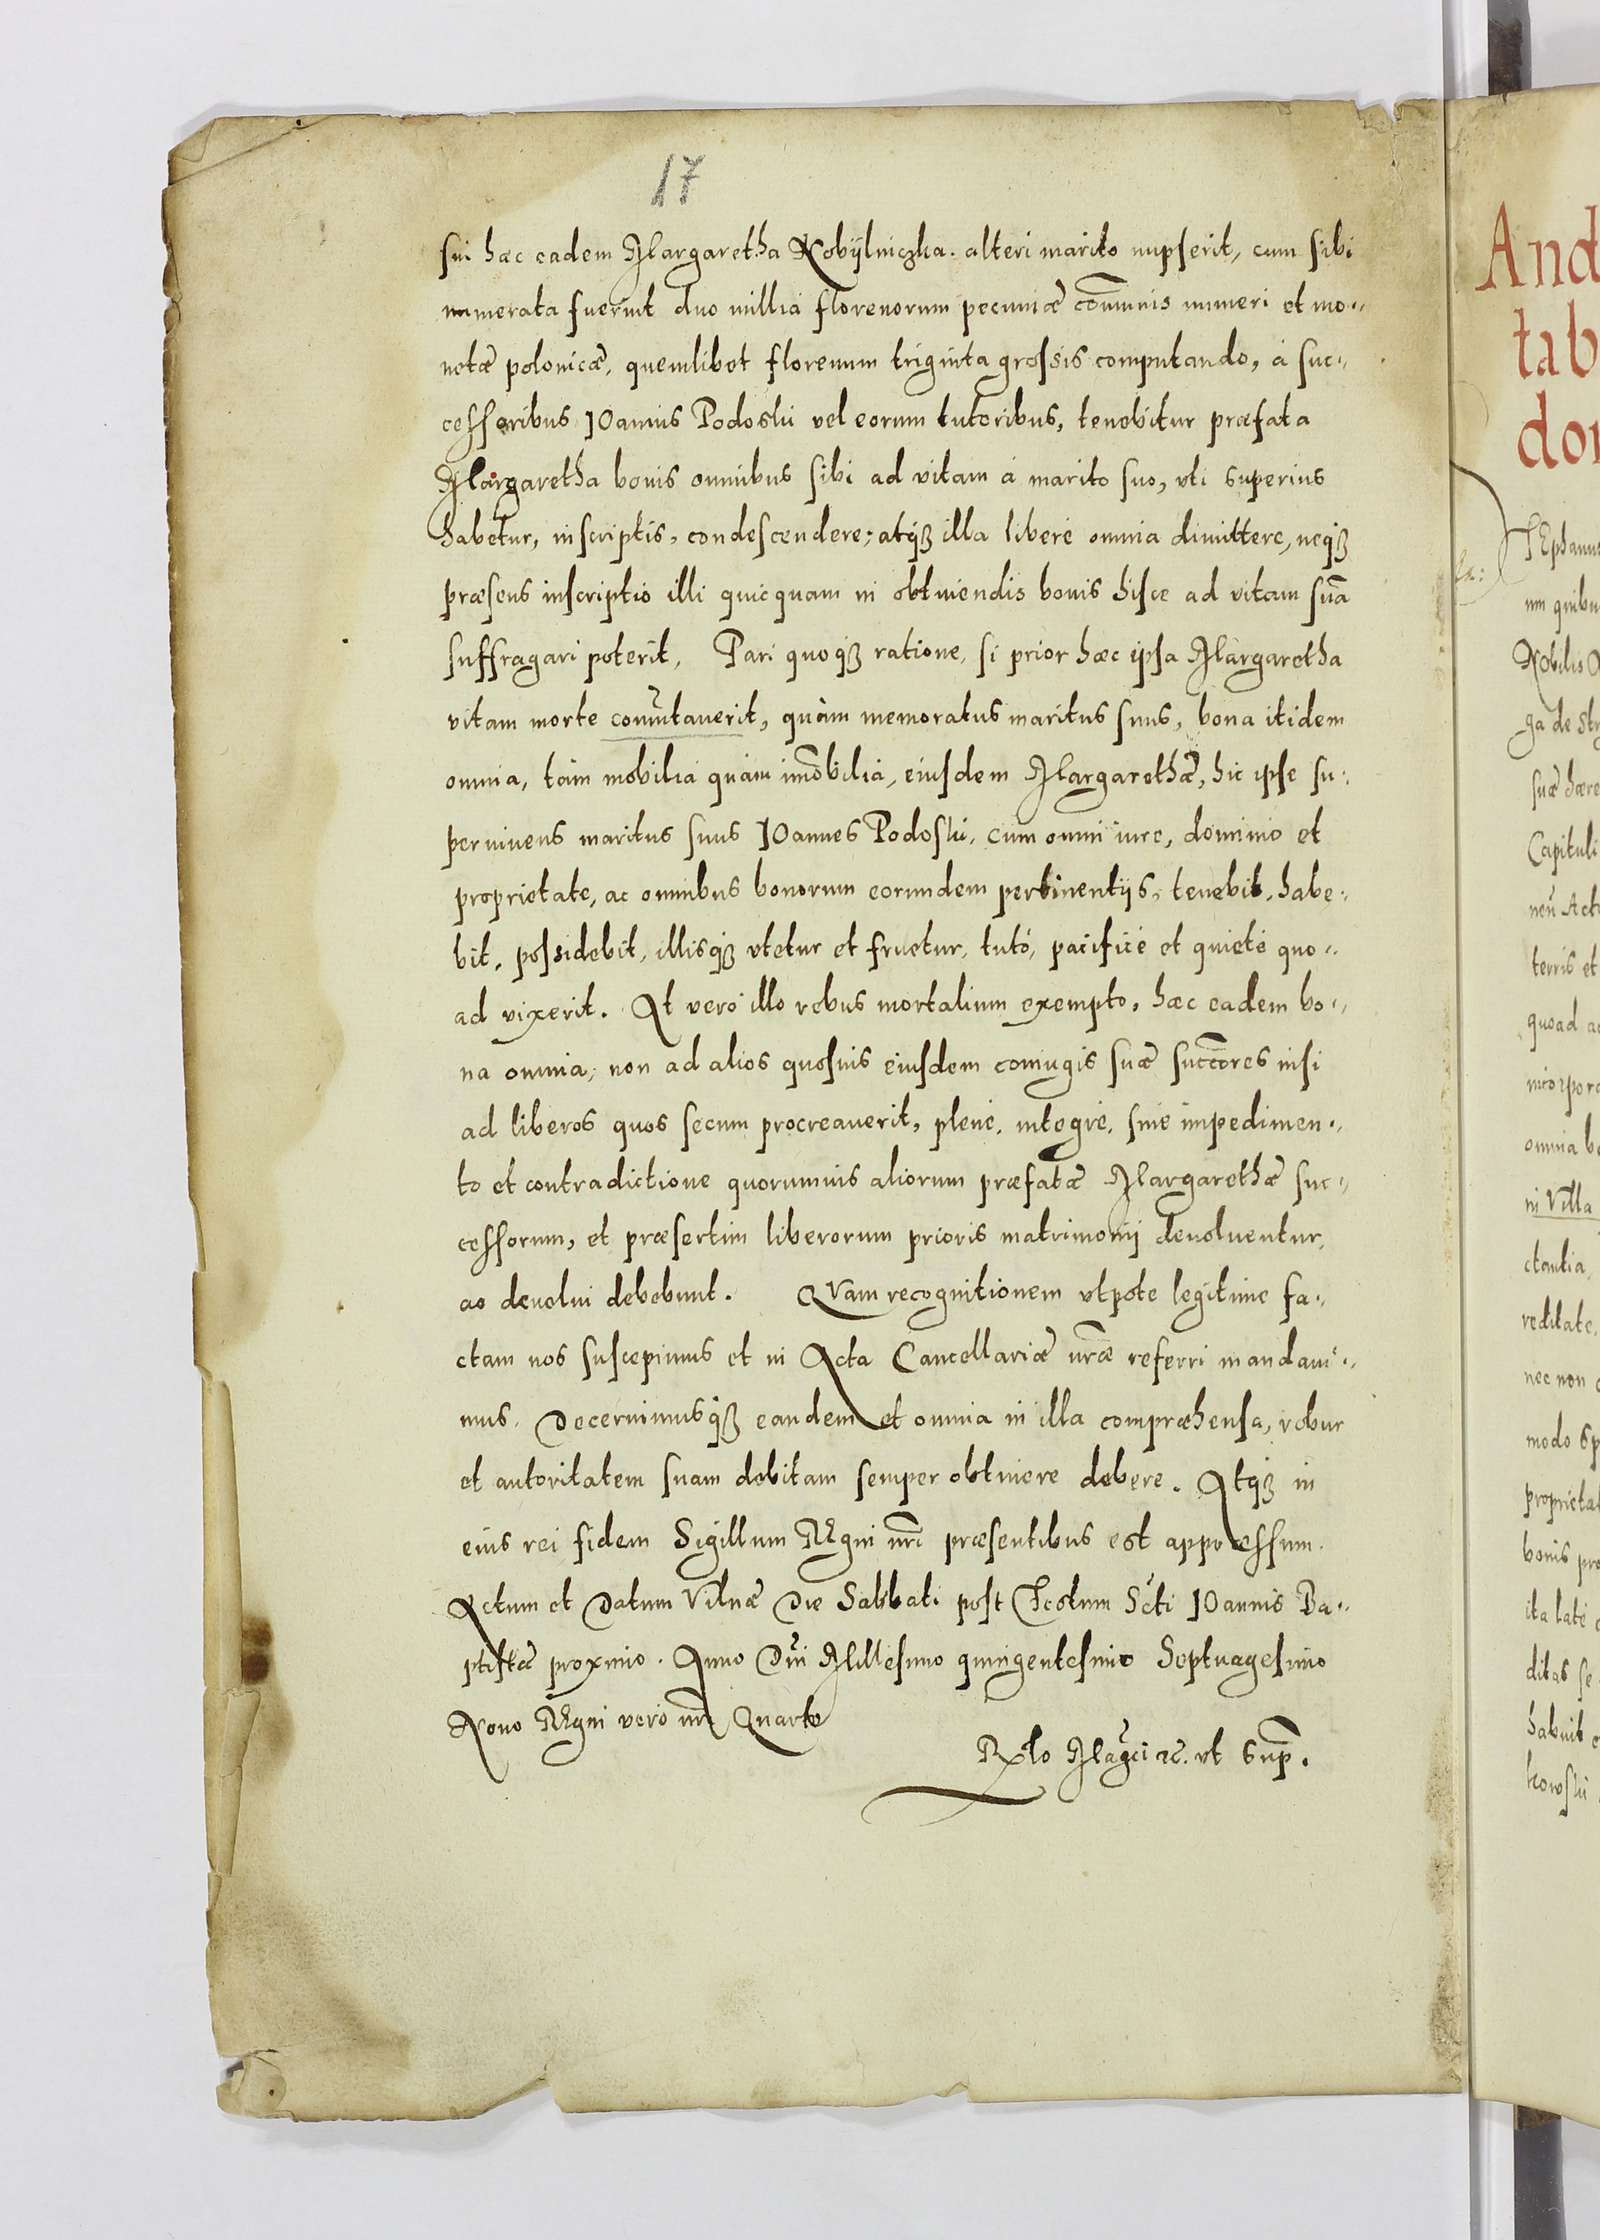 17
sin haec eadem Margaretha Kobÿlniczka. alteri marito nupserit, cum sibi
numerata fuerint duo millia florenorum pecuniae com̃unis numeri et mo-
netae polonicae, quemlibet florenum triginta grossis computando, à suc-
cessoribus IOannis Podoski vel eorum tutoribus, tenebitur praefata
Margaretha bonis omnibus sibi ad vitam à marito suo, vti superius
habetur, inscriptis, condescendere; atqȝ illa liberè omnia dimittere, neqȝ
praesens inscriptio illi quicquam in obtinendis bonis hisce ad vitam suã
suffragari poterit, Pari quoqȝ ratione, si prior haec ipsa Margaretha
vitam morte com̃utauerit, quàm memoratus maritus suus, bona itidem
omnia, tàm mobilia quàm im̃obilia, eiusdem Margarethae, hic ipse su-
peruiuens maritus suus IOannes Podoski, cum omni iure, dominio et
proprietate, ac omnibus bonorum eorundem pertinentijs, tenebit, habe-
bit, possidebit, illisqȝ vtetur et fruetur, tutò, pacificè et quietè quo-
ad vixerit. At verò illo rebus mortalium exempto, haec eadem bo-
na omnia, non ad alios quosuis eiusdem coniugis suae succc̃ores nisi
ad liberos quos secum procreauerit, plenè, integrè, sine impedimen-
to et contradictione quorumuis aliorum praefatae Margarethae suc-
cessorum, et praesertim liberorum prioris matrimonij deuoluentur,
ac deuolui debebunt. QVam recognitionem vtpote legitime fa-
ctam nos suscepimus et in Acta Cancellariae nr̃ae referri mandaui-
mus. Decernimusqȝ eandem et omnia in illa compraehensa, robur
et autoritatem suam debitam semper obtinere debere. Atqȝ in
eius rei fidem Sigillum REgni nr̃i praesentibus est appraessum.
Actum et Datum Vilnae Die Sabbati post Festum Scti IOannis Ba-
ptistae proximo. Anno Dn̄i Millesimo quingentesimo Septuagesimo
Nono REgni verò nr̃i Quarto
Rlo Magci ec. vt Sup̃.
And
tab
dor
TEphanus
um quibu
Nobilis
ga de Str
suae haere
Capituli
neũ Act
terris et
quoad a
incorpora
omnia bo
in Villa
ctantia,
reditate,
nec non
modo sp
proprietat
bonis pro
ita latè
ditas se
habuit
kowski